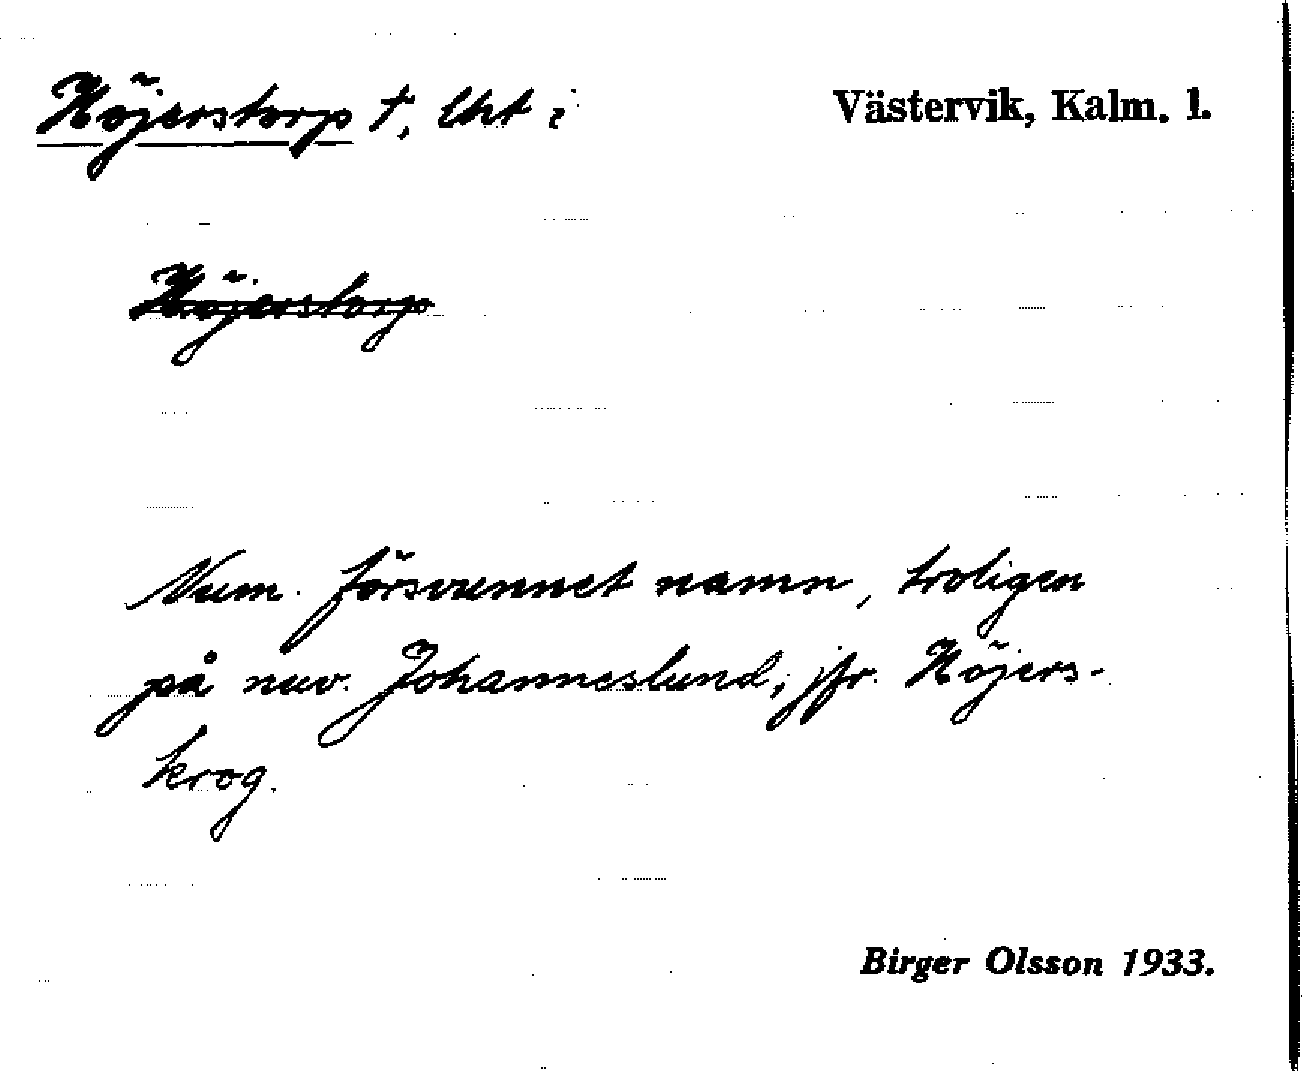 Höjerstorp †, lht i Västervik, Kalm. l.
Höjerstorp
Num. försvunnet namn, troligen
på nuv. Johanneslund, jfr. Höjers-
krog.
Birger Olsson 1933.